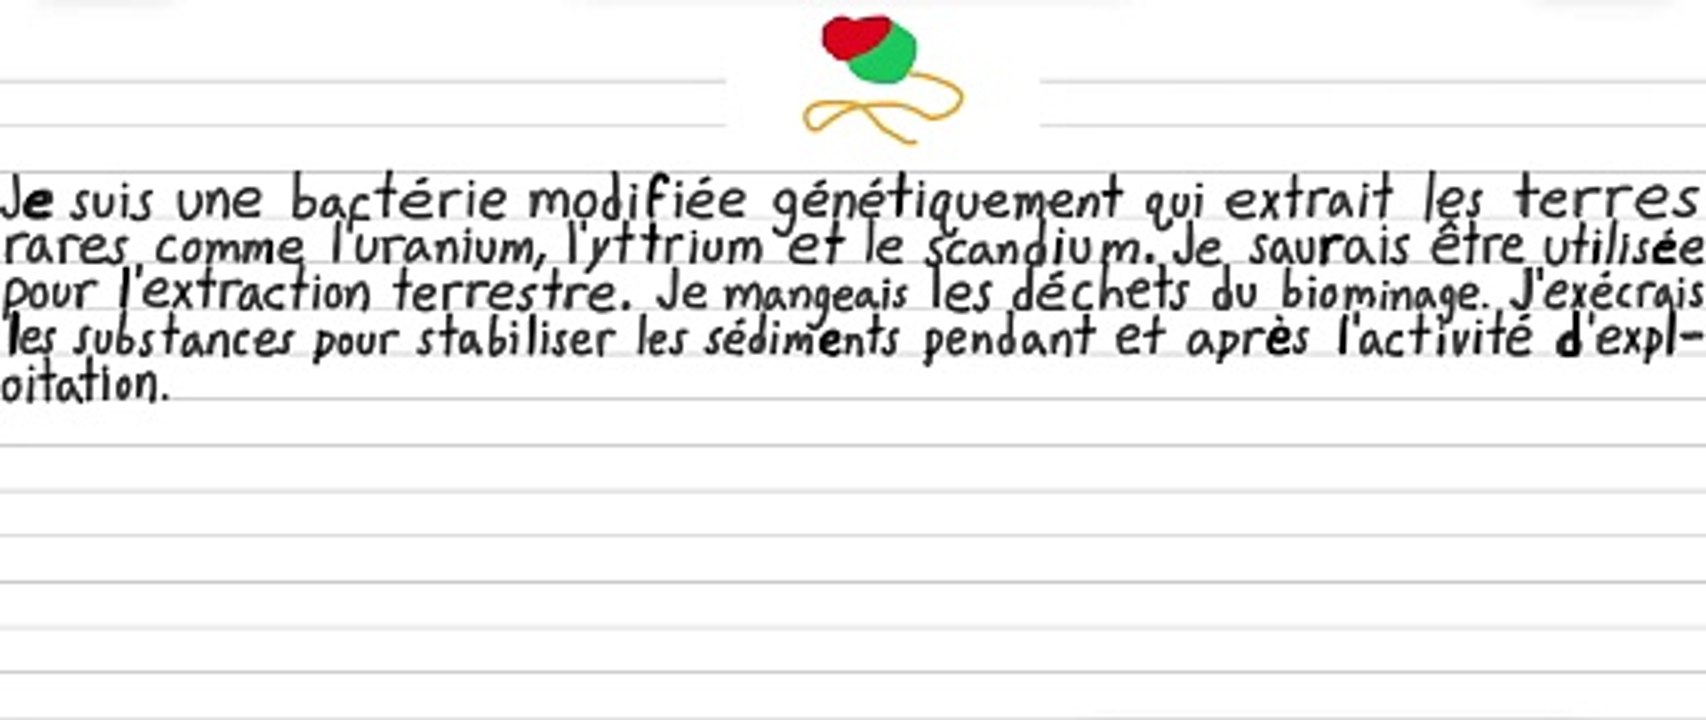 Je suis une bactérie modifiée génétiquement qui extrait les terres
rares comme l'uranium, l'yttrium et le scandium. Je saurais être utilisée
pour l'extraction terrestre. Je mangeais les déchets du biominage. J'exécrais
les substances pour stabiliser les sédiments pendant et après l'activité d'expl-
oitation.